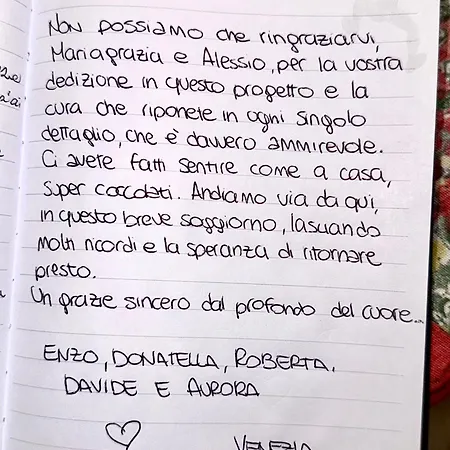 Non possiamo che ringraziarvi,
Mariagrazia e Alessio, per la vostra
dedizione in questo progetto e la
cura che riponete in ogni singolo
dettaglio, che è davvero ammirevole.
Ci avete fatti sentire come a casa,
super coccolati. Andiamo via da qui,
in questo breve soggiorno, lasciando
molti ricordi e la speranza di ritornare
presto.
Un grazie sincero dal profondo del cuore...
ENZO, DONATELLA, ROBERTA,
DAVIDE E AURORA
VENEZIA